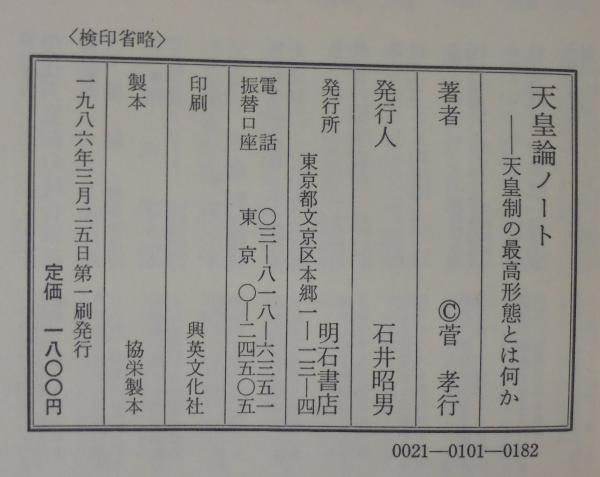 〈検印省略〉
天皇論ノート
――天皇制の最高形態とは何か
著者 ©菅 孝行
発行人 石井昭男
発行所 明石書店
東京都文京区本郷一―一三―四
電話 〇三―八一八―六三五一
振替口座 東京 〇―二四五〇五
印刷 興英文化社
製本 協栄製本
一九八六年三月二五日第一刷発行
定価 一八〇〇円
0021―0101―0182